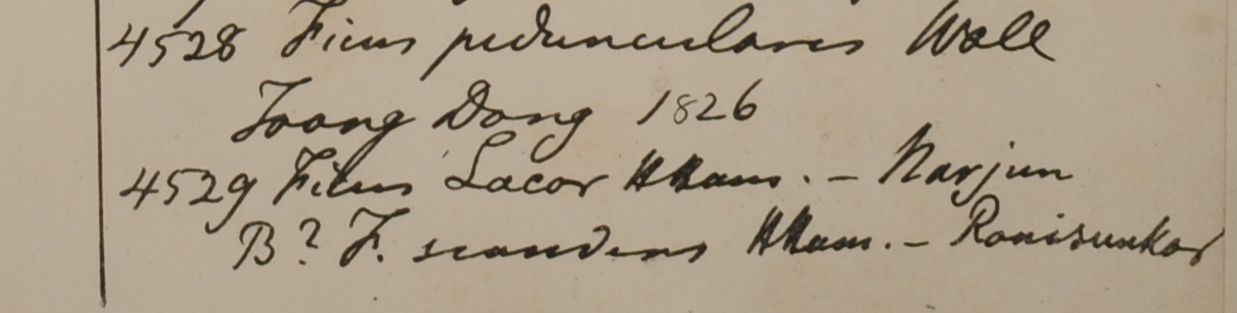 4528 Ficus peduncularis Wall
Toong Dong 1826
4529 Ficus Lacor HHam. - Narjun
B? F. scandens HHam. - Ronisunkar